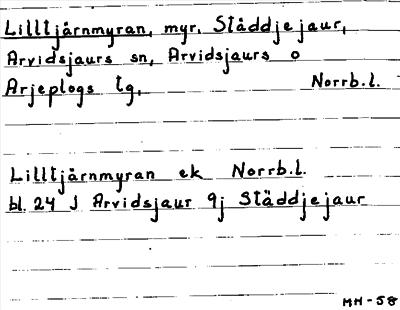 Lilltjärnmyran, myr, Ståddjejaur,
Arvidsjaurs sn, Arvidsjaurs o
Arjeplogs tg, Norrb.l.
Lilltjärnmyran ek Norrb.l.
bl. 24 J Arvidsjaur 9j Ståddjejaur
MH-58